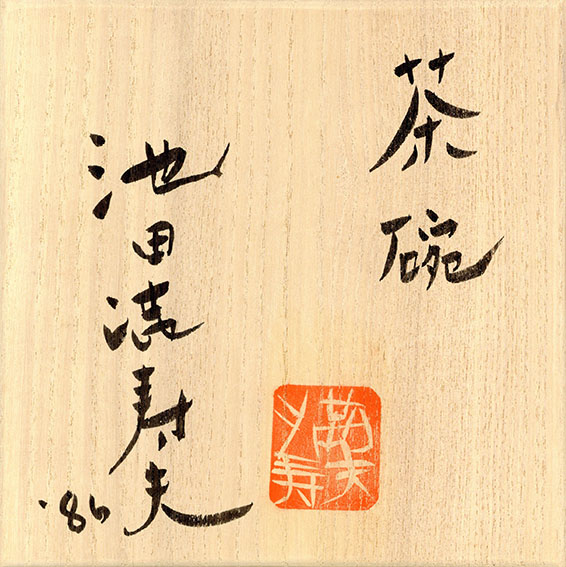 茶碗
池田満寿夫
'86
満寿夫